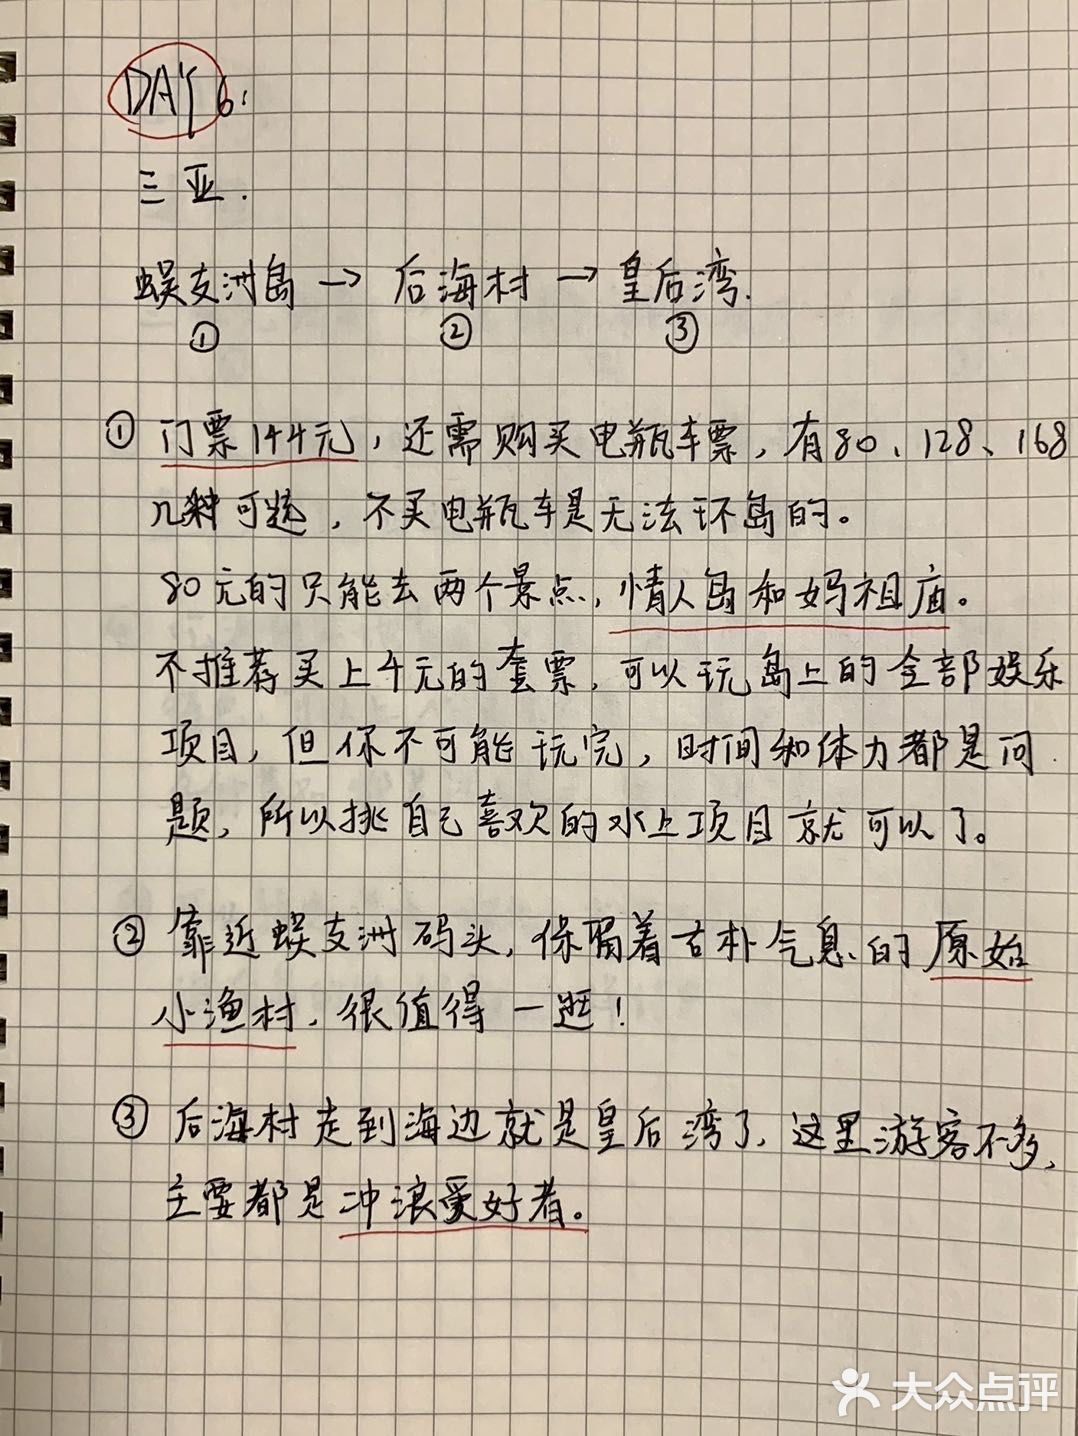 DAY 6:
三亚.
蜈支洲岛 → 后海村 → 皇后湾.
① ② ③
① 门票144元，还需购买电瓶车票，有80、128、168
几种可选，不买电瓶车是无法环岛的。
80元的只能去两个景点，情人岛和妈祖庙。
不推荐买上千元的套票，可以玩岛上的全部娱乐
项目，但你不可能玩完，时间和体力都是问
题，所以挑自己喜欢的水上项目就可以了。
② 靠近蜈支洲码头，保留着古朴气息的原始
小渔村，很值得一逛！
③ 后海村走到海边就是皇后湾了，这里游客不多，
主要都是冲浪爱好者。
大众点评